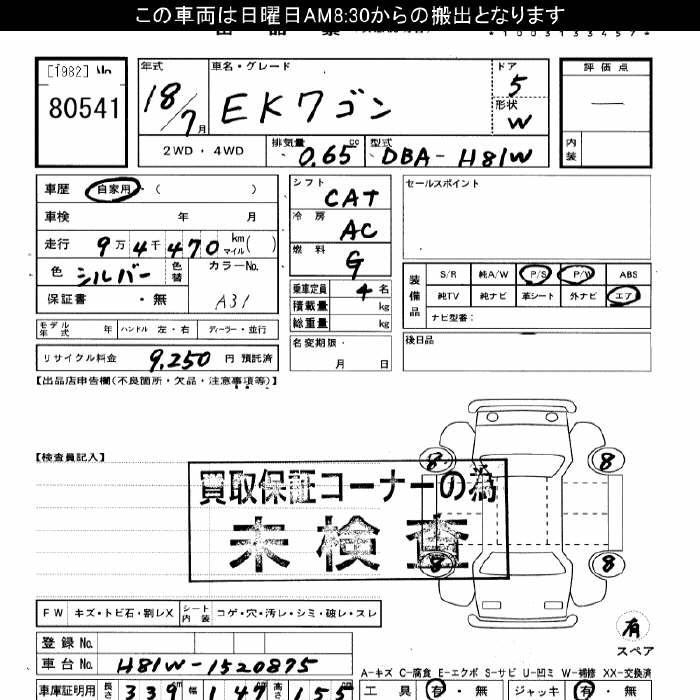 この車両は日曜日AM8:30からの搬出となります
[1982] No
80541
年式 車名・グレード ドア 評価点
18/7月 EKワゴン 5
形状 W
2WD・4WD 排気量 0.65 cc 型式 DBA-H81W 内装
車歴 自家用・( )
シフト CAT
セールスポイント
車検 年 月
冷房 AC
走行 9万4千470 km マイル( )
燃料 G
色 シルバー 色替 カラーNo. A31
保証書 ・無
乗車定員 4名
積載量 kg
総重量 kg
装備品 S/R 純A/W P/S P/W ABS
純TV 純ナビ 革シート 外ナビ エア
ナビ型番:
モデル年式 年 ハンドル 左・右 ディーラー・並行
名変期限・ 月 日
後日品
リサイクル料金 9,250 円 預託済
【出品店申告欄(不良箇所・欠品・注意事項等)】
【検査員記入】
8 8
買取保証コーナーの為
未検査
8 8
FW キズ・トビ石・割レX シート内装 コゲ・穴・汚レ・シミ・破レ・スレ
有
スペア
登録No.
車台No. H81W-1520875
A-キズ C-腐食 E-エクボ S-サビ U-凹ミ W-補修 XX-交換済
車庫証明用 長さ 339 幅 147 高さ 155
工具 有・無 ジャッキ 有・無